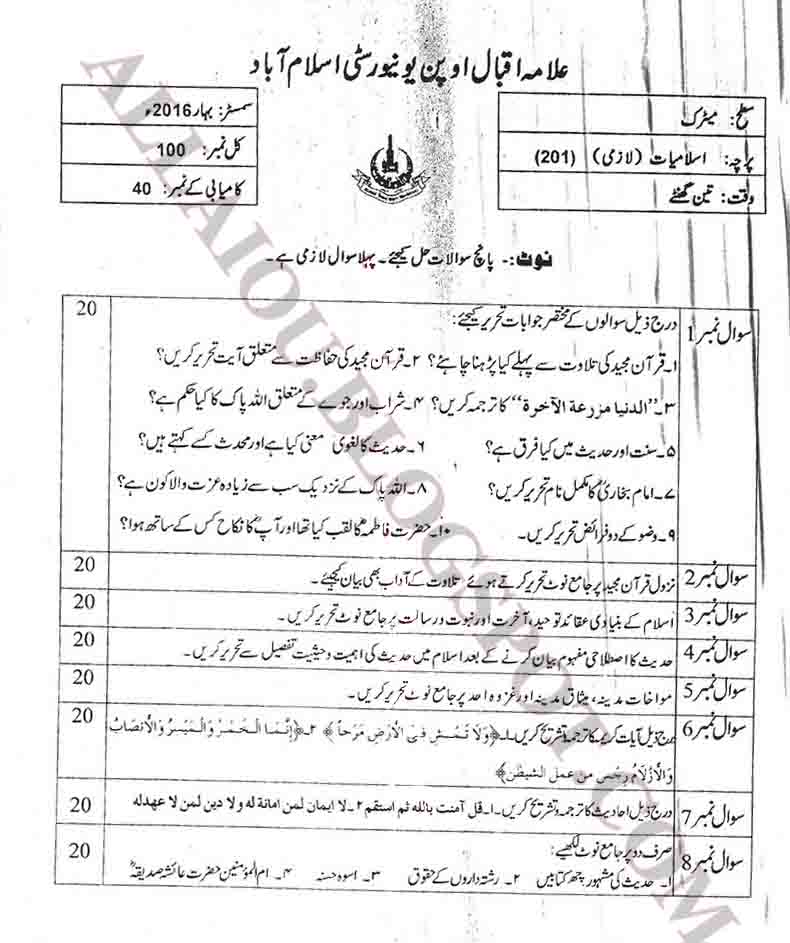 علامہ اقبال اوپن یونیورسٹی اسلام آباد
سطح: میٹرک
پرچہ: اسلامیات (لازمی) (201)
وقت: تین گھنٹے
سمسٹر: بہار 2016ء
کل نمبر: 100
کامیابی کے نمبر: 40
نوٹ:۔ پانچ سوالات حل کیجئے۔ پہلا سوال لازمی ہے۔
سوال نمبر 1 درج ذیل سوالوں کے مختصر جوابات تحریر کیجئے: 20
۱۔ قرآن مجید کی تلاوت سے پہلے کیا پڑھنا چاہئے؟ ۲۔ قرآن مجید کی حفاظت سے متعلق آیت تحریر کریں؟
۳۔ "الدنیا مزرعة الآخرة" کا ترجمہ کریں؟ ۴۔ شراب اور جوے کے متعلق اللہ پاک کا کیا حکم ہے؟
۵۔ سنت اور حدیث میں کیا فرق ہے؟ ۶۔ حدیث کا لغوی معنی کیا ہے اور محدث کسے کہتے ہیں؟
۷۔ امام بخاریؒ کا مکمل نام تحریر کریں؟ ۸۔ اللہ پاک کے نزدیک سب سے زیادہ عزت والا کون ہے؟
۹۔ وضو کے دو فرائض تحریر کریں۔ ۱۰۔ حضرت فاطمہؓ کا لقب کیا تھا اور آپؓ کا نکاح کس کے ساتھ ہوا؟
سوال نمبر 2 نزول قرآن مجید پر جامع نوٹ تحریر کرتے ہوئے تلاوت کے آداب بھی بیان کیجئے۔ 20
سوال نمبر 3 اسلام کے بنیادی عقائد توحید، آخرت اور نبوت و رسالت پر جامع نوٹ تحریر کریں۔ 20
سوال نمبر 4 حدیث کا اصطلاحی مفہوم بیان کرنے کے بعد اسلام میں حدیث کی اہمیت و حیثیت تفصیل سے تحریر کریں۔ 20
سوال نمبر 5 مواخات مدینہ، میثاق مدینہ اور غزوہ احد پر جامع نوٹ تحریر کریں۔ 20
سوال نمبر 6 درج ذیل آیات کریمہ کا ترجمہ و تشریح کریں۔ ۱۔ ﴿وَلَا تَمْشِ فِی الْأَرْضِ مَرَحاً﴾ ۲۔ ﴿إِنَّمَا الْخَمْرُ وَالْمَيْسِرُ وَالْأَنْصَابُ 20
وَالْأَزْلَامُ رِجْسٌ مِن عملِ الشیطٰن﴾
سوال نمبر 7 درج ذیل احادیث کا ترجمہ و تشریح کریں۔ ۱۔ قل آمنت بالله ثم استقم ۲۔ لا ایمان لمن لا امانة له ولا دین لمن لا عهد له 20
سوال نمبر 8 صرف دو پر جامع نوٹ لکھیے: 20
۱۔ حدیث کی مشہور چھ کتابیں ۲۔ رشتہ داروں کے حقوق ۳۔ اسوہ حسنہ ۴۔ ام المؤمنین حضرت عائشہ صدیقہؓ
ALLAIOU.BLOGSPOT.COM